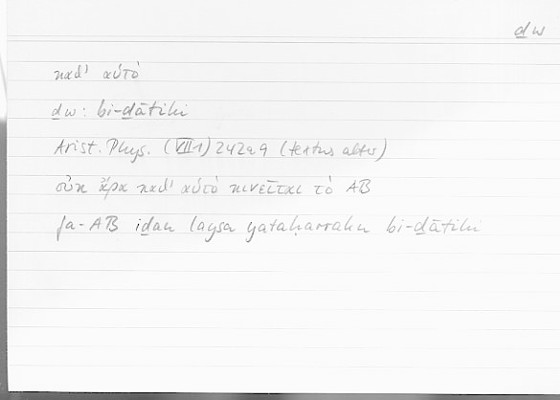 ḏw
καθ' αὑτό
ḏw: bi-ḏātihi
Arist. Phys. (VII 1) 242a9 (textus alter)
οὐκ ἄρα καθ' αὑτὸ κινεῖται τὸ AB
fa-AB iḏan laysa yataḥarraku bi-ḏātihi